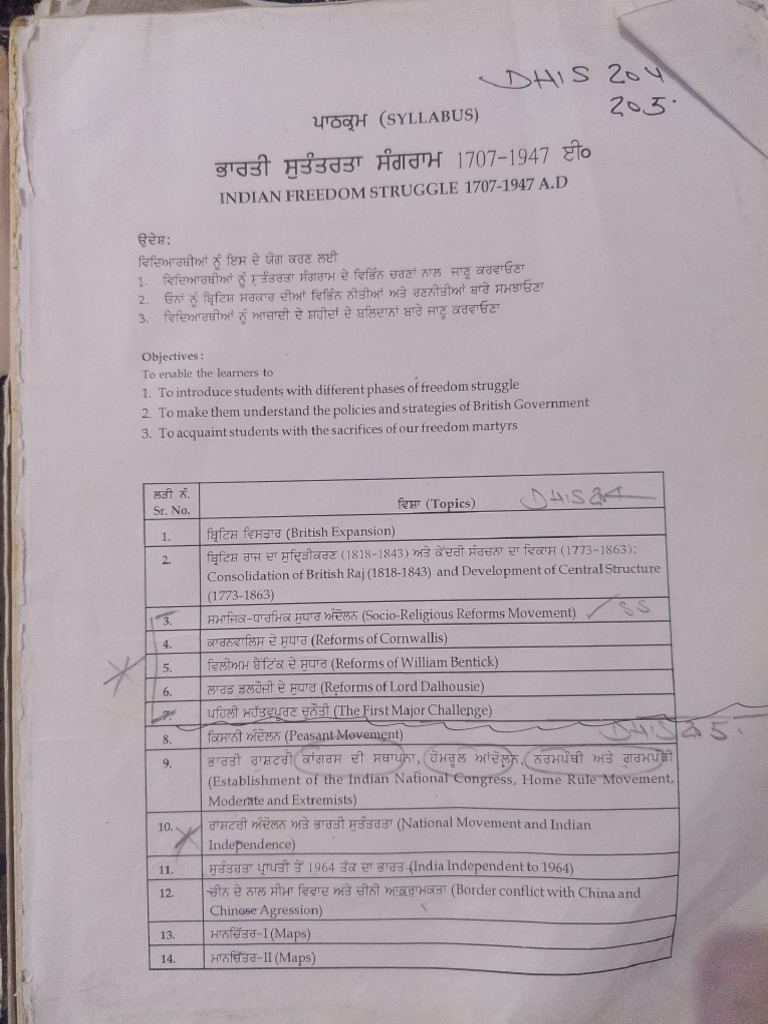 DHIS 204
205.
ਪਾਠਕ੍ਰਮ (SYLLABUS)
ਭਾਰਤੀ ਸੁਤੰਤਰਤਾ ਸੰਗਰਾਮ 1707-1947 ਈ੦
INDIAN FREEDOM STRUGGLE 1707-1947 A.D
ਉਦੇਸ਼:
ਵਿਦਿਆਰਥੀਆਂ ਨੂੰ ਇਸ ਦੇ ਯੋਗ ਕਰਣ ਲਈ
1. ਵਿਦਿਆਰਥੀਆਂ ਨੂੰ ਸੁਤੰਤਰਤਾ ਸੰਗਰਾਮ ਦੇ ਵਿਭਿੰਨ ਚਰਣਾਂ ਨਾਲ ਜਾਣੂ ਕਰਵਾਓਣਾ
2. ਓਨਾਂ ਨੂੰ ਬ੍ਰਿਟਿਸ਼ ਸਰਕਾਰ ਦੀਆਂ ਵਿਭਿੰਨ ਨੀਤੀਆਂ ਅਤੇ ਰਣਨੀਤੀਆਂ ਬਾਰੇ ਸਮਝਾਓਣਾ
3. ਵਿਦਿਆਰਥੀਆਂ ਨੂੰ ਆਜ਼ਾਦੀ ਦੇ ਸ਼ਹੀਦਾਂ ਦੇ ਬਲਿਦਾਨਾਂ ਬਾਰੇ ਜਾਣੂ ਕਰਵਾਓਣਾ
Objectives:
To enable the learners to
1. To introduce students with different phases of freedom struggle
2. To make them understand the policies and strategies of British Government
3. To acquaint students with the sacrifices of our freedom martyrs
ਲੜੀ ਨੰ.
Sr. No.
ਵਿਸ਼ਾ (Topics) DHIS
1. ਬ੍ਰਿਟਿਸ਼ ਵਿਸਤਾਰ (British Expansion)
2. ਬ੍ਰਿਟਿਸ਼ ਰਾਜ ਦਾ ਸੁਦ੍ਰਿੜੀਕਰਣ (1818-1843) ਅਤੇ ਕੇਂਦਰੀ ਸੰਰਚਨਾ ਦਾ ਵਿਕਾਸ (1773-1863):
Consolidation of British Raj (1818-1843) and Development of Central Structure
(1773-1863)
3. ਸਮਾਜਿਕ-ਧਾਰਮਿਕ ਸੁਧਾਰ ਅੰਦੋਲਨ (Socio-Religious Reforms Movement) SS
4. ਕਾਰਨਵਾਲਿਸ ਦੇ ਸੁਧਾਰ (Reforms of Cornwallis)
5. ਵਿਲੀਅਮ ਬੈਂਟਿੰਕ ਦੇ ਸੁਧਾਰ (Reforms of William Bentick)
6. ਲਾਰਡ ਡਲਹੌਜ਼ੀ ਦੇ ਸੁਧਾਰ (Reforms of Lord Dalhousie)
7. ਪਹਿਲੀ ਮਹੱਤਵਪੂਰਣ ਚੁਨੌਤੀ (The First Major Challenge)
8. ਕਿਸਾਨੀ ਅੰਦੋਲਨ (Peasant Movement) DHIS 205.
9. ਭਾਰਤੀ ਰਾਸ਼ਟਰੀ ਕਾਂਗਰਸ ਦੀ ਸਥਾਪਨਾ, ਹੋਮਰੂਲ ਆਂਦੋਲਨ, ਨਰਮਪੰਥੀ ਅਤੇ ਗਰਮਪੰਥੀ
(Establishment of the Indian National Congress, Home Rule Movement,
Moderate and Extremists)
10. ਰਾਸ਼ਟਰੀ ਅੰਦੋਲਨ ਅਤੇ ਭਾਰਤੀ ਸੁਤੰਤਰਤਾ (National Movement and Indian
Independence)
11. ਸੁਤੰਤਰਤਾ ਪ੍ਰਾਪਤੀ ਤੋਂ 1964 ਤੱਕ ਦਾ ਭਾਰਤ (India Independent to 1964)
12. ਚੀਨ ਦੇ ਨਾਲ ਸੀਮਾ ਵਿਵਾਦ ਅਤੇ ਚੀਨੀ ਆਕ੍ਰਾਮਕਤਾ (Border conflict with China and
Chinese Agression)
13. ਮਾਨਚਿੱਤਰ-I (Maps)
14. ਮਾਨਚਿੱਤਰ-II (Maps)